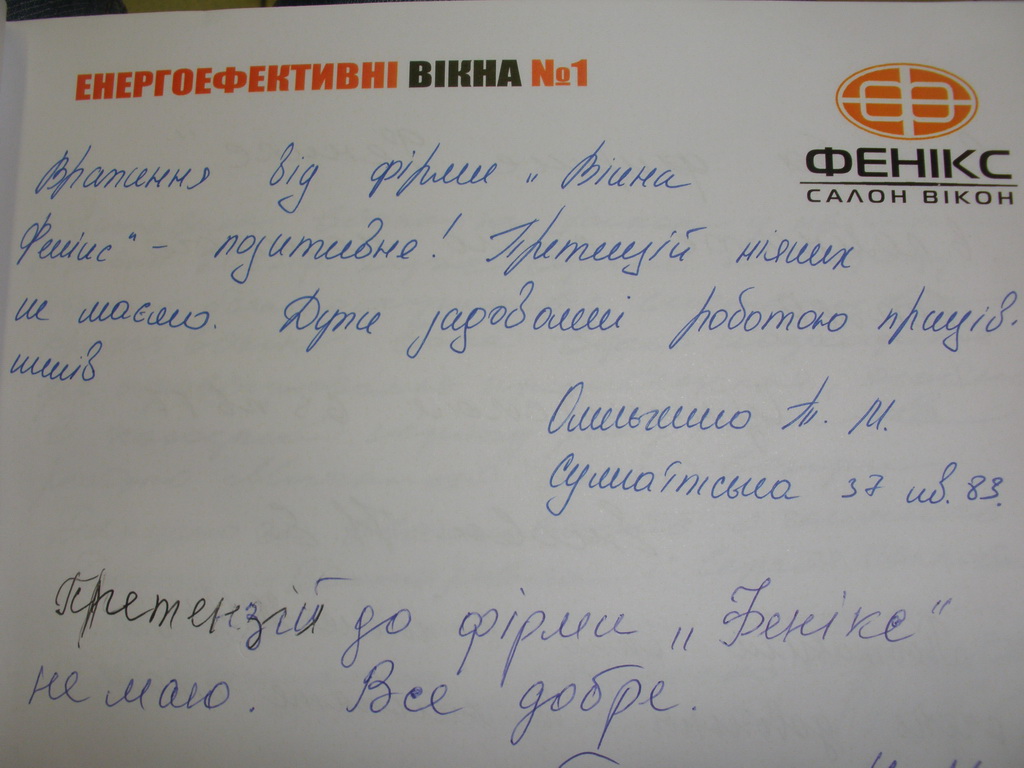 ЕНЕРГОЕФЕКТИВНІ ВІКНА №1
ФЕНІКС
САЛОН ВІКОН
Враження від фірми „Вікна
Фенікс" – позитивне! Претензій ніяких
не маємо. Дуже задоволені роботою праців-
ників
Т. М.
Сумгаїтська 37 кв. 83.
Претензій до фірми „Фенікс"
не маю. Все добре.